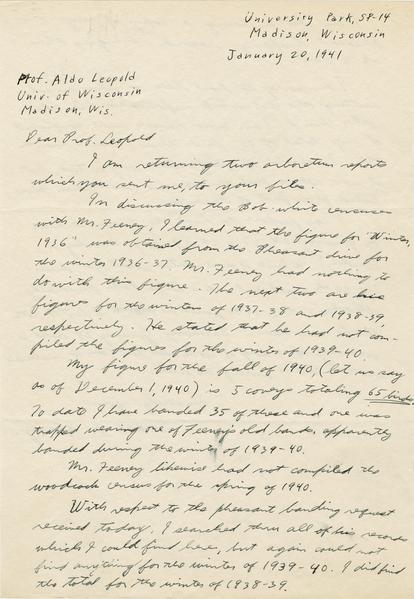 University Park, SP-14
Madison, Wisconsin
January 20, 1941
Prof. Aldo Leopold
Univ. of Wisconsin
Madison, Wis.
Dear Prof. Leopold
I am returning two arboretum reports
which you sent me, to your files.
In discussing the Bob-white censuses
with Mr. Feeney, I learned that the figure for "Winter,
1936" was obtained from the Pheasant drive for
the winter 1936-37. Mr. Feeney had nothing to
do with this figure. The next two are his
figures for the winters of 1937-38 and 1938-39,
respectively. He stated that he had not com-
piled the figures for the winter of 1939-40.
My figure for the fall of 1940, (let us say
as of December 1, 1940) is 5 coveys totaling 65 birds.
To date I have banded 35 of these and one was
trapped wearing one of Feeney's old bands, apparently
banded during the winter of 1939-40.
Mr. Feeney likewise had not compiled the
woodcock census for the spring of 1940.
With respect to the pheasant banding request
received today, I searched thru all of his records
which I could find here, but again could not
find anything for the winter of 1939-40. I did find
the total for the winter of 1938-39.